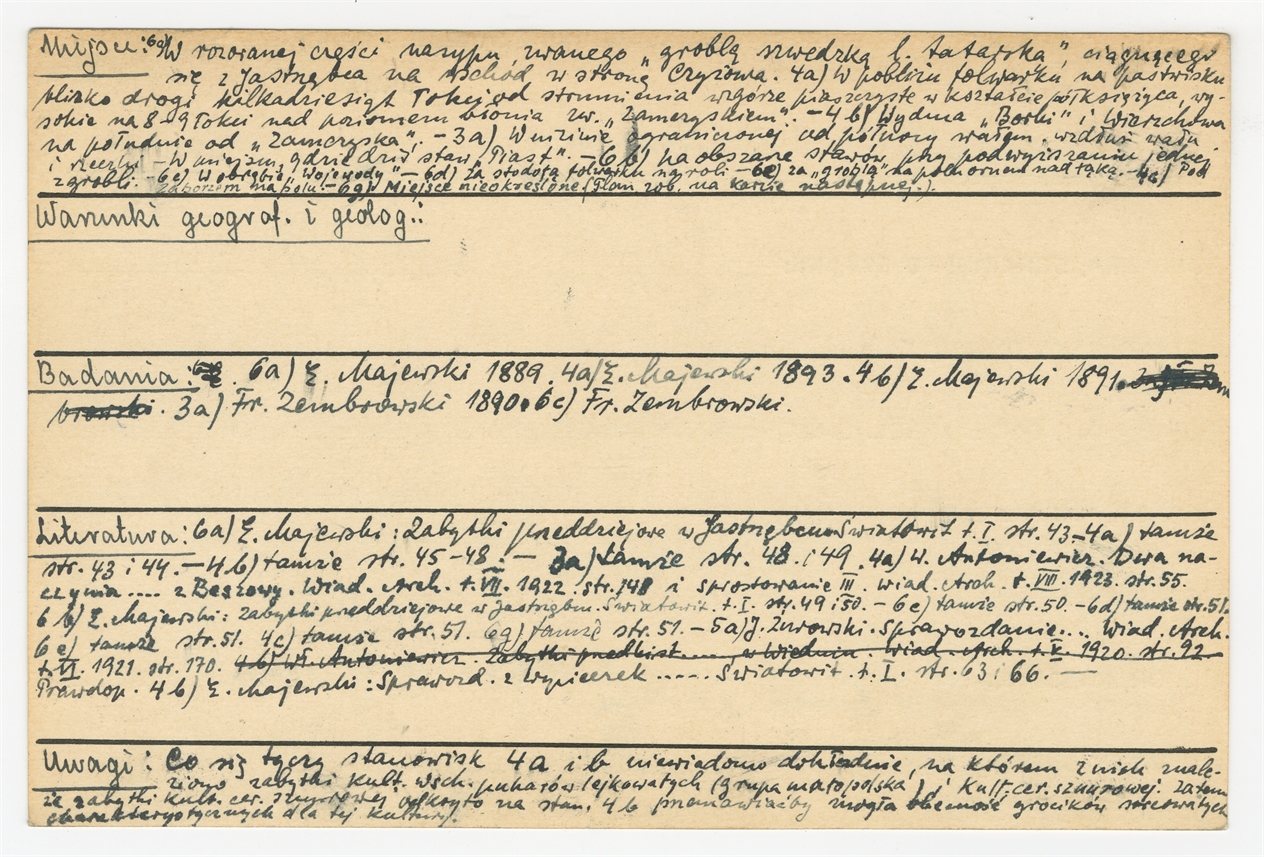 Miejsce: 6a) W rozoranej części nasypu, zwanego „groblą szwedzką l. tatarską", ciągnącego
się z Jastrzębca na wschód w stronę Czyżowa. 4a) W pobliżu folwarku na pastwisku
blizko drogi kilkadziesiąt łokci od strumienia wzgórze piaszczyste w kształcie półksiężyca, wy-
sokie na 8-9 łokci nad poziomem błonia zw. „Zamczyskiem". - 4b) Wydma „Borki" i Wierzchowa
na południe od „Zamczyska". - 3a) W nizinie ograniczonej od północy wałem, wzdłuż wału
i rzeczki - W miejscu, gdzie dziś staw „Piast". - 6b) na obszarze stawów przy podwyższaniu jednej
z grobli. - 6c) W obrębie „Wojewody" - 6d) Za stodołą folwarku na roli - 6e) za „groblą" na północ nad łąką. - 4c) Pod
zaborzem na polu. - 6g) Miejsce nieokreślone (Plan zob. na karcie następnej.).
Warunki geograf. i geolog.:
Badania: 6a) E. Majewski 1889. 4a) E. Majewski 1893. 4b) E. Majewski 1891.
3a) Fr. Zembrowski 1890. 6c) Fr. Zembrowski.
Literatura: 6a) E. Majewski: Zabytki przeddziejowe w Jastrzębcu Światowit t. I. str. 43 - 4a) tamże
str. 43 i 44. - 4b) tamże str. 45-48. - 3a) tamże str. 48 i 49. 4a) W. Antoniewicz. Dwa na-
czynia .... z Beszowy. Wiad. Arch. t. VII. 1922. str. 148 i sprostowanie III. Wiad. Arch. t. VIII. 1923. str. 55.
6b) E. Majewski: Zabytki przeddziejowe w Jastrzębcu. Światowit. t. I. str. 49 i 50. - 6c) tamże str. 50. - 6d) tamże str. 51.
6e) tamże str. 51. 4c) tamże str. 51. 6g) tamże str. 51. - 5a) J. Żurowski. Sprawozdanie.... Wiad. Arch.
t. VI. 1921. str. 170. 4b) Wł. Antoniewicz. Zabytki przedhist..... w Wiedniu. Wiad. Arch. t. V. 1920. str. 92.
Prawdop. 4b) E. Majewski: Sprawozd. z wycieczek ..... Światowit. t. I. str. 63 i 66. -
Uwagi: Co się tyczy stanowisk 4a i b niewiadomo dokładnie, na którem z nich znale-
ziono zabytki kult. wsch. puharów lejkowatych (grupa małopolska), i kult. cer. sznurowej. Za tem
że zabytki kult. cer. sznurowej odkryto na stan. 4b przemawiaćby mogła obecność grocików sercowatych
charakterystycznych dla tej kultury.